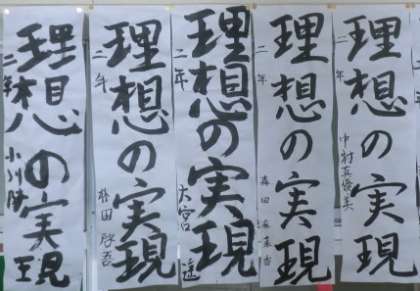 理想の実現
二年
中村真悠美
理想の実現
二年
森田
理想の実現
二年
大宮
理想の実現
二年
啓吾
理想の実現
二年
小川